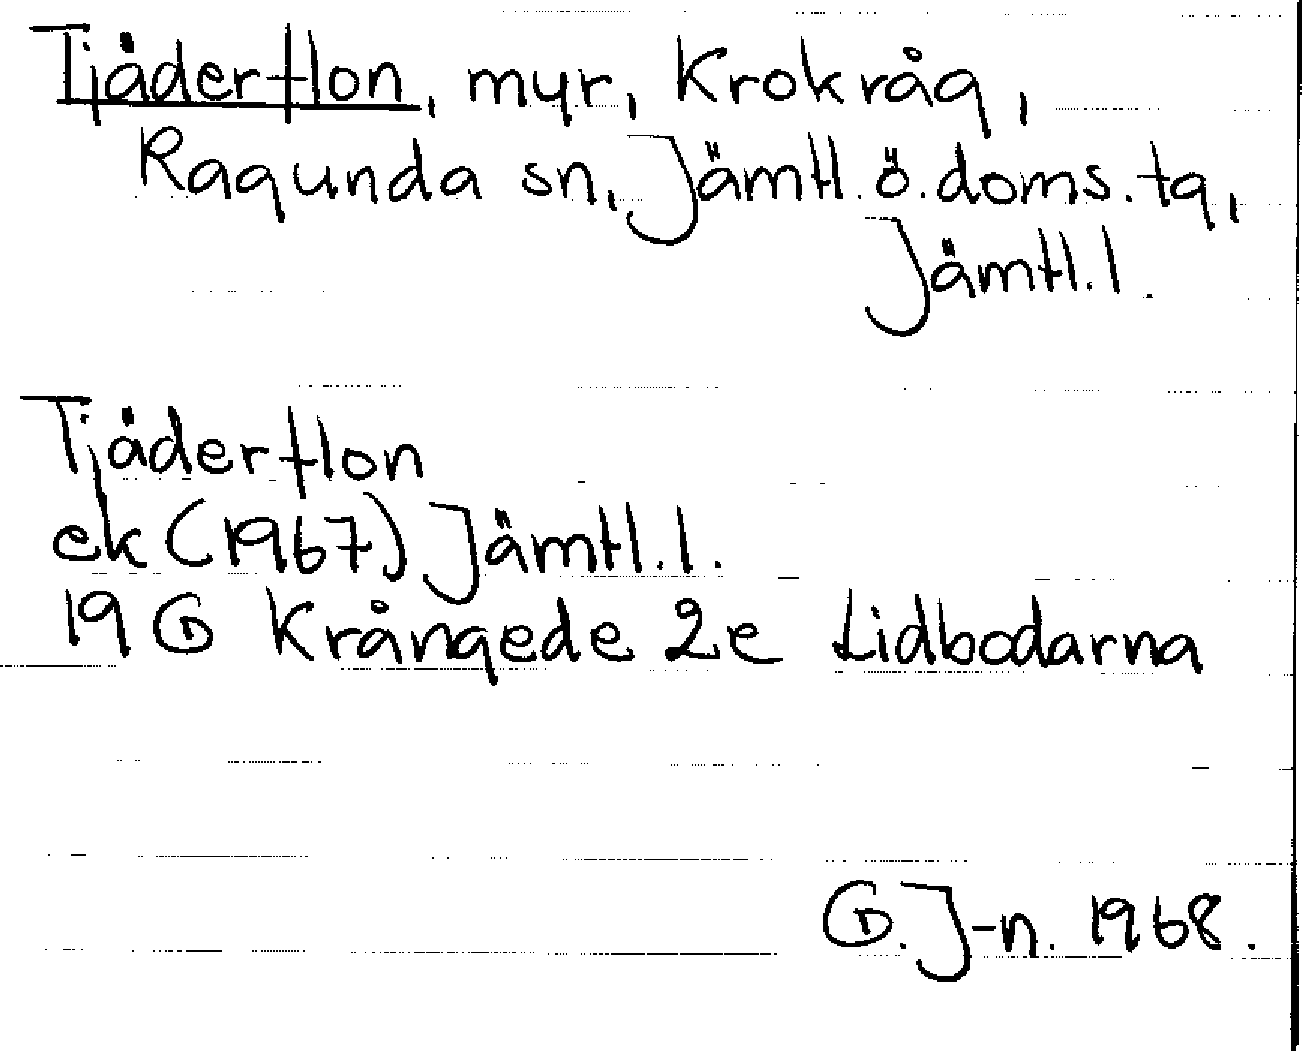 Tjäderflon, myr, Krokvåg,
Ragunda sn, Jämtl. ö. doms. tg,
Jämtl. l.
Tjäderflon
ek (1967) Jämtl. l.
19 G Krångede 2e Lidbodarna
G. J-n. 1968.